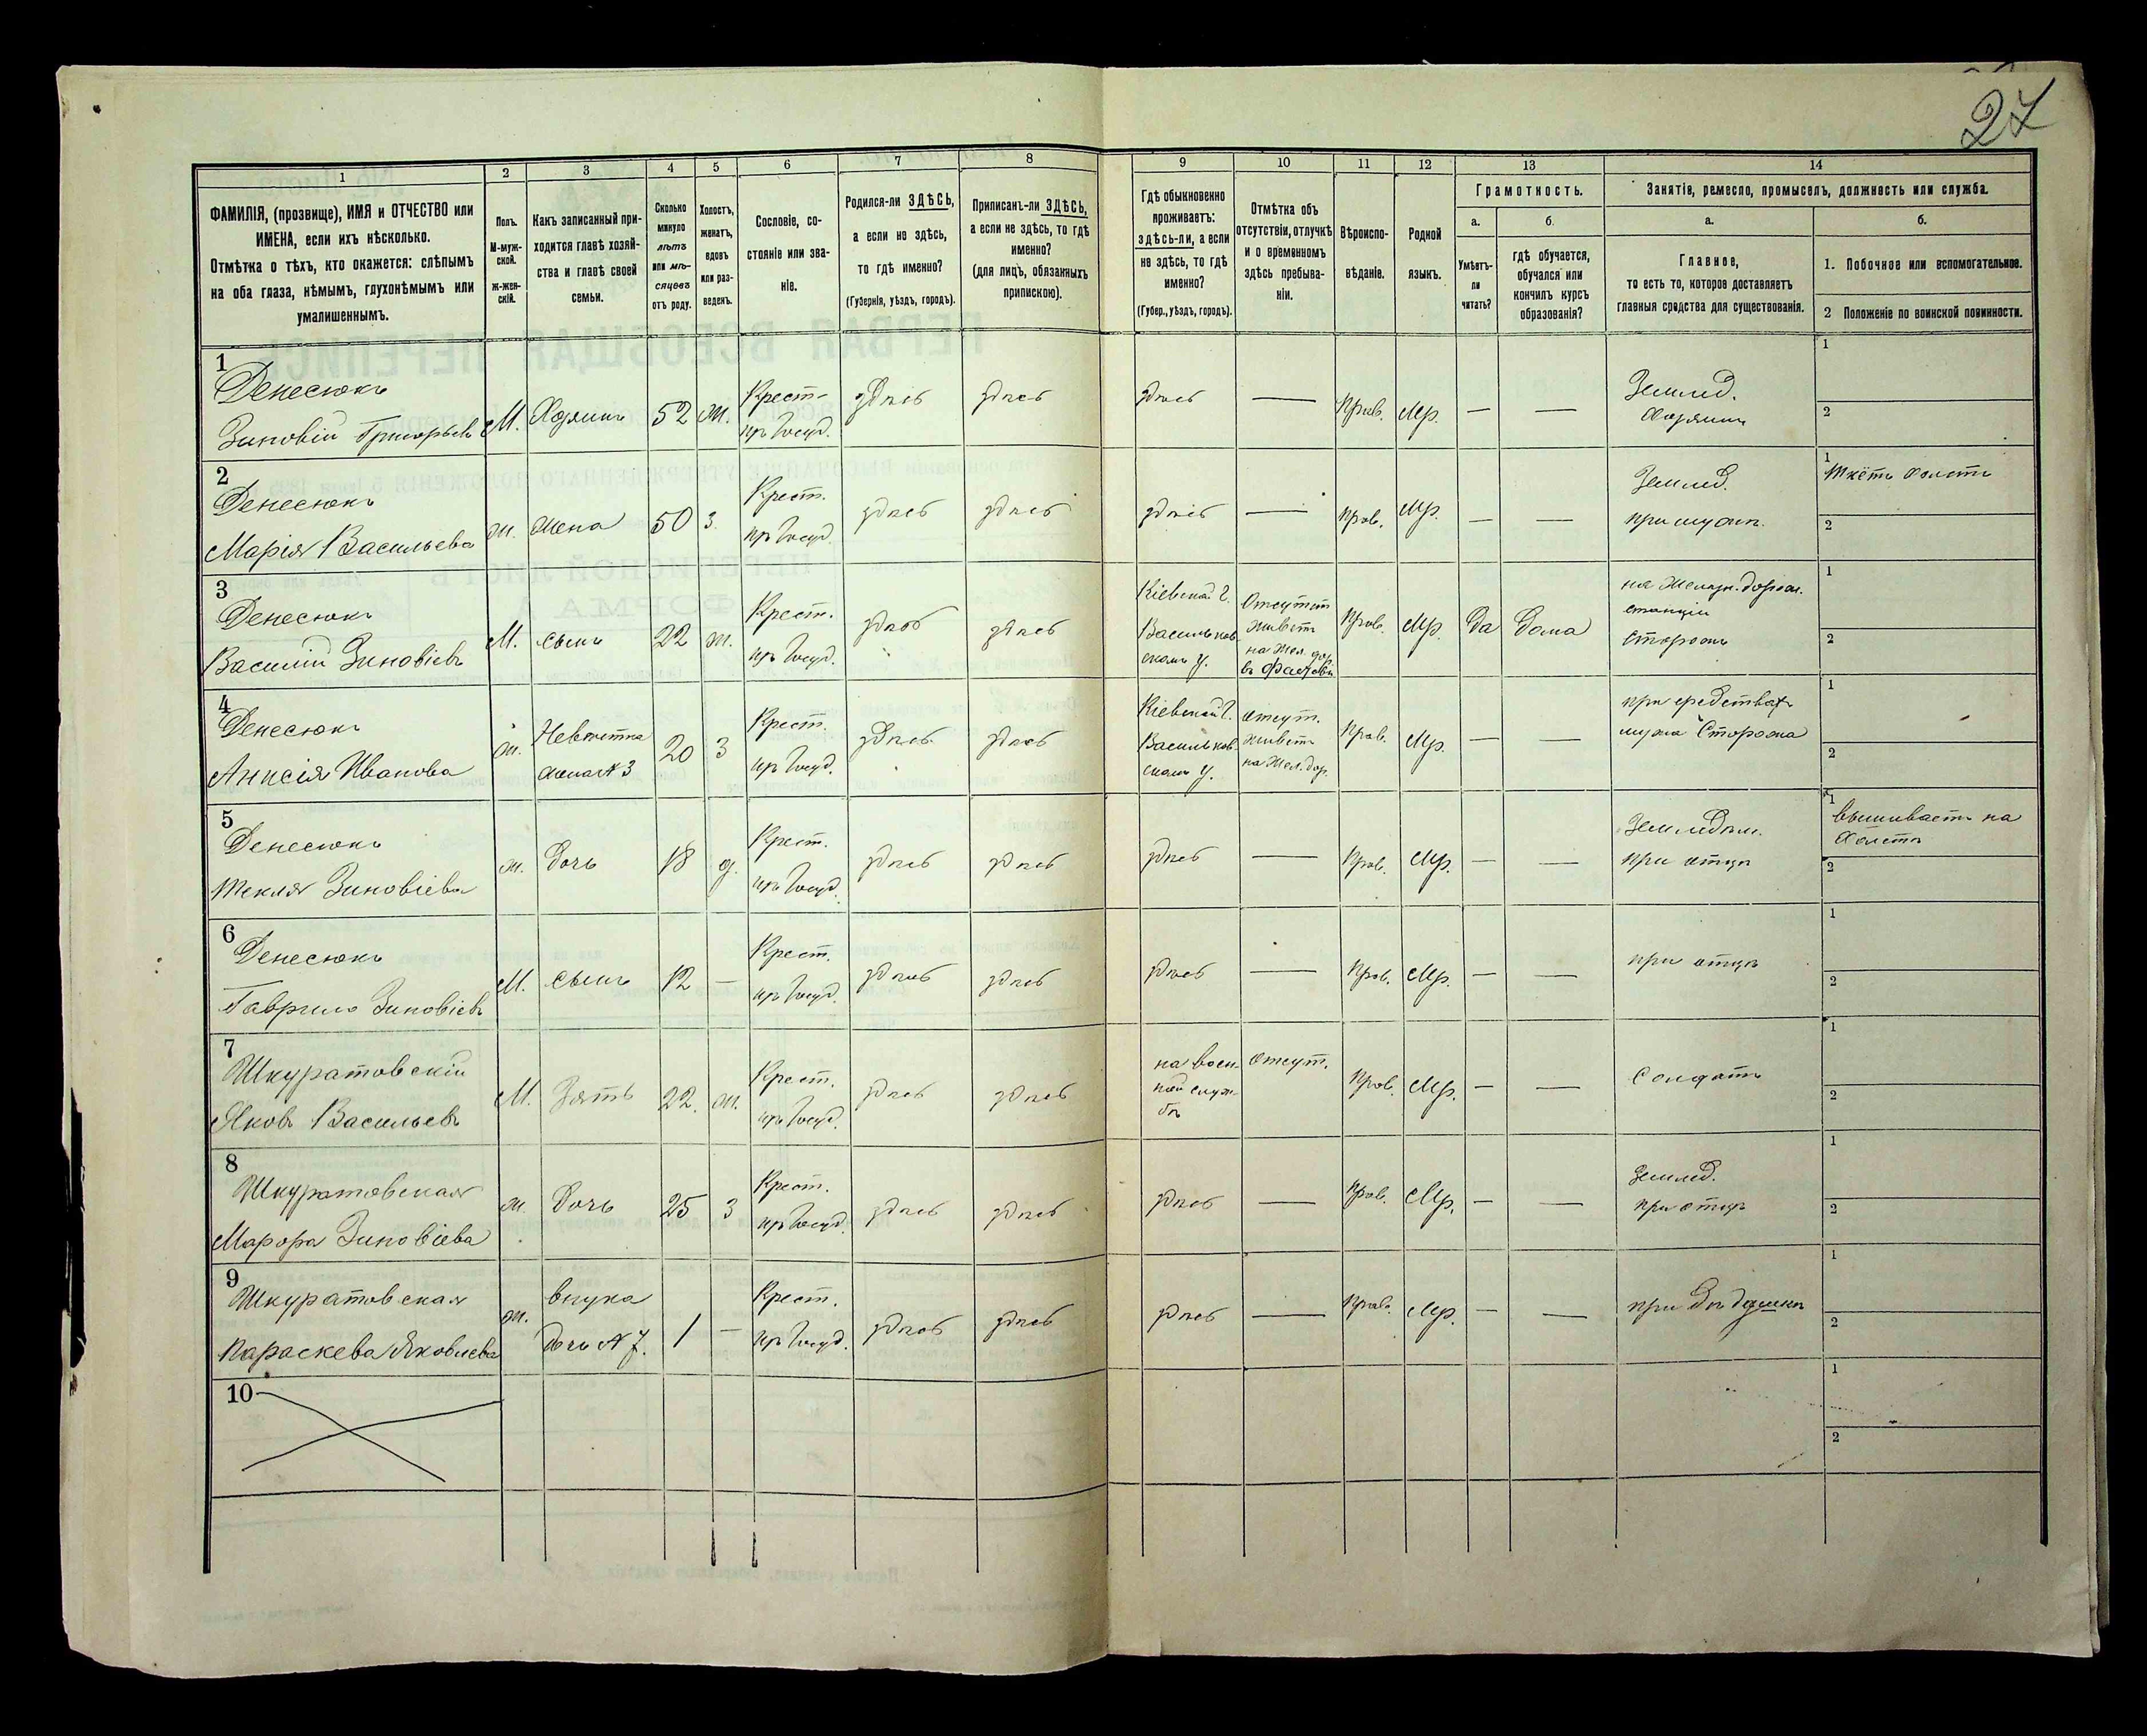 27
1
2
3
4
5
6
7
8
9
10
11
12
13
14
ФАМИЛІЯ, (прозвище), ИМЯ и ОТЧЕСТВО или
ИМЕНА, если ихъ нѣсколько.
Отмѣтка о тѣхъ, кто окажется: слѣпымъ
на оба глаза, нѣмымъ, глухонѣмымъ или
умалишеннымъ.
Полъ.
М-муж-
ской.
ж-жен-
скій.
Какъ записанный при-
ходится главѣ хозяй-
ства и главѣ своей
семьи.
Сколько
минуло
лѣтъ
или мѣ-
сяцевъ
отъ роду.
Холостъ,
женатъ,
вдовъ
или раз-
веденъ.
Сословіе, со-
стояніе или зва-
ніе.
Родился-ли ЗДѢСЬ,
а если не здѣсь,
то гдѣ именно?
(Губернія, уѣздъ, городъ).
Приписанъ-ли ЗДѢСЬ,
а если не здѣсь, то гдѣ
именно?
(для лицъ, обязанныхъ
припискою).
Гдѣ обыкновенно
проживаетъ:
здѣсь-ли, а если
не здѣсь, то гдѣ
именно?
(Губер., уѣздъ, городъ).
Отмѣтка объ
отсутствіи, отлучкѣ
и о временномъ
здѣсь пребыва-
ніи.
Вѣроиспо-
вѣданіе.
Родной
языкъ.
Грамотность.
а.
Умѣетъ-
ли
читать?
б.
гдѣ обучается,
обучался или
кончилъ курсъ
образованія?
Занятіе, ремесло, промыселъ, должность или служба.
а.
Главное,
то есть то, которое доставляетъ
главныя средства для существованія.
б.
1. Побочное или вспомогательное.
2 Положеніе по воинской повинности.
1
Денесюкъ
Зиновій Григорьевъ
М.
Хозяинъ
52
ж.
Крест-
изъ Госуд.
здѣсь
здѣсь
здѣсь
—
Прав.
Мр.
—
—
Землед.
Хозяинъ
1
2
2
Денесюкъ
Марія Васильева
ж.
жена
50
з.
Крест.
изъ Госуд.
здѣсь
здѣсь
здѣсь
—
Прав.
Мр.
—
—
Землед.
при мужѣ.
1
ткётъ холстъ
2
3
Денесюкъ
Василій Зиновіевъ
М.
сынъ
22
ж.
Крест.
изъ Госуд.
здѣсь
здѣсь
Кіевской г.
Васильков-
скомъ у.
Отсутст
живетъ
на Жел. дор.
въ Фастовѣ
Прав.
Мр.
Да
Дома
на Желѣзн. дорож.
станціи
Сторожъ
1
2
4
Денесюкъ
Анисія Иванова
ж.
Невѣстка
жена № 3
20
з
Крест.
изъ Госуд.
здѣсь
здѣсь
Кіевской г.
Васильков-
скомъ у.
отсут.
живетъ
на Жел. дор.
Прав.
Мр.
—
—
при средствах
мужа Сторожа
1
2
5
Денесюкъ
Текля Зиновіева
ж.
дочь
18
д.
Крест.
изъ Госуд.
здѣсь
здѣсь
здѣсь
—
Прав.
Мр.
—
—
при отцѣ
1
вышиваетъ на
холстѣ
2
6
Денесюкъ
Гаврило Зиновіевъ
М.
сынъ
12
—
Крест.
изъ Госуд.
здѣсь
здѣсь
здѣсь
—
Прав.
Мр.
—
—
при отцѣ
1
2
7
Шкуратовскій
Яковъ Васильевъ
М.
Зять
22.
ж.
Крест.
изъ Госуд.
здѣсь
здѣсь
на воен-
ной служ-
бѣ
отсут.
Прав.
Мр.
—
—
Солдатъ
1
2
8
Шкуратовская
Зиновіева
ж.
дочь
25
з
Крест.
изъ Госуд.
здѣсь
здѣсь
здѣсь
—
Прав.
Мр.
—
—
Землед.
при отцѣ
1
2
9
Шкуратовская
Параскева Яковлева
ж.
внука
дочь № 7.
1
—
Крест.
изъ Госуд.
здѣсь
здѣсь
здѣсь
—
Прав.
Мр.
—
—
при дѣдушкѣ
1
2
10
1
2